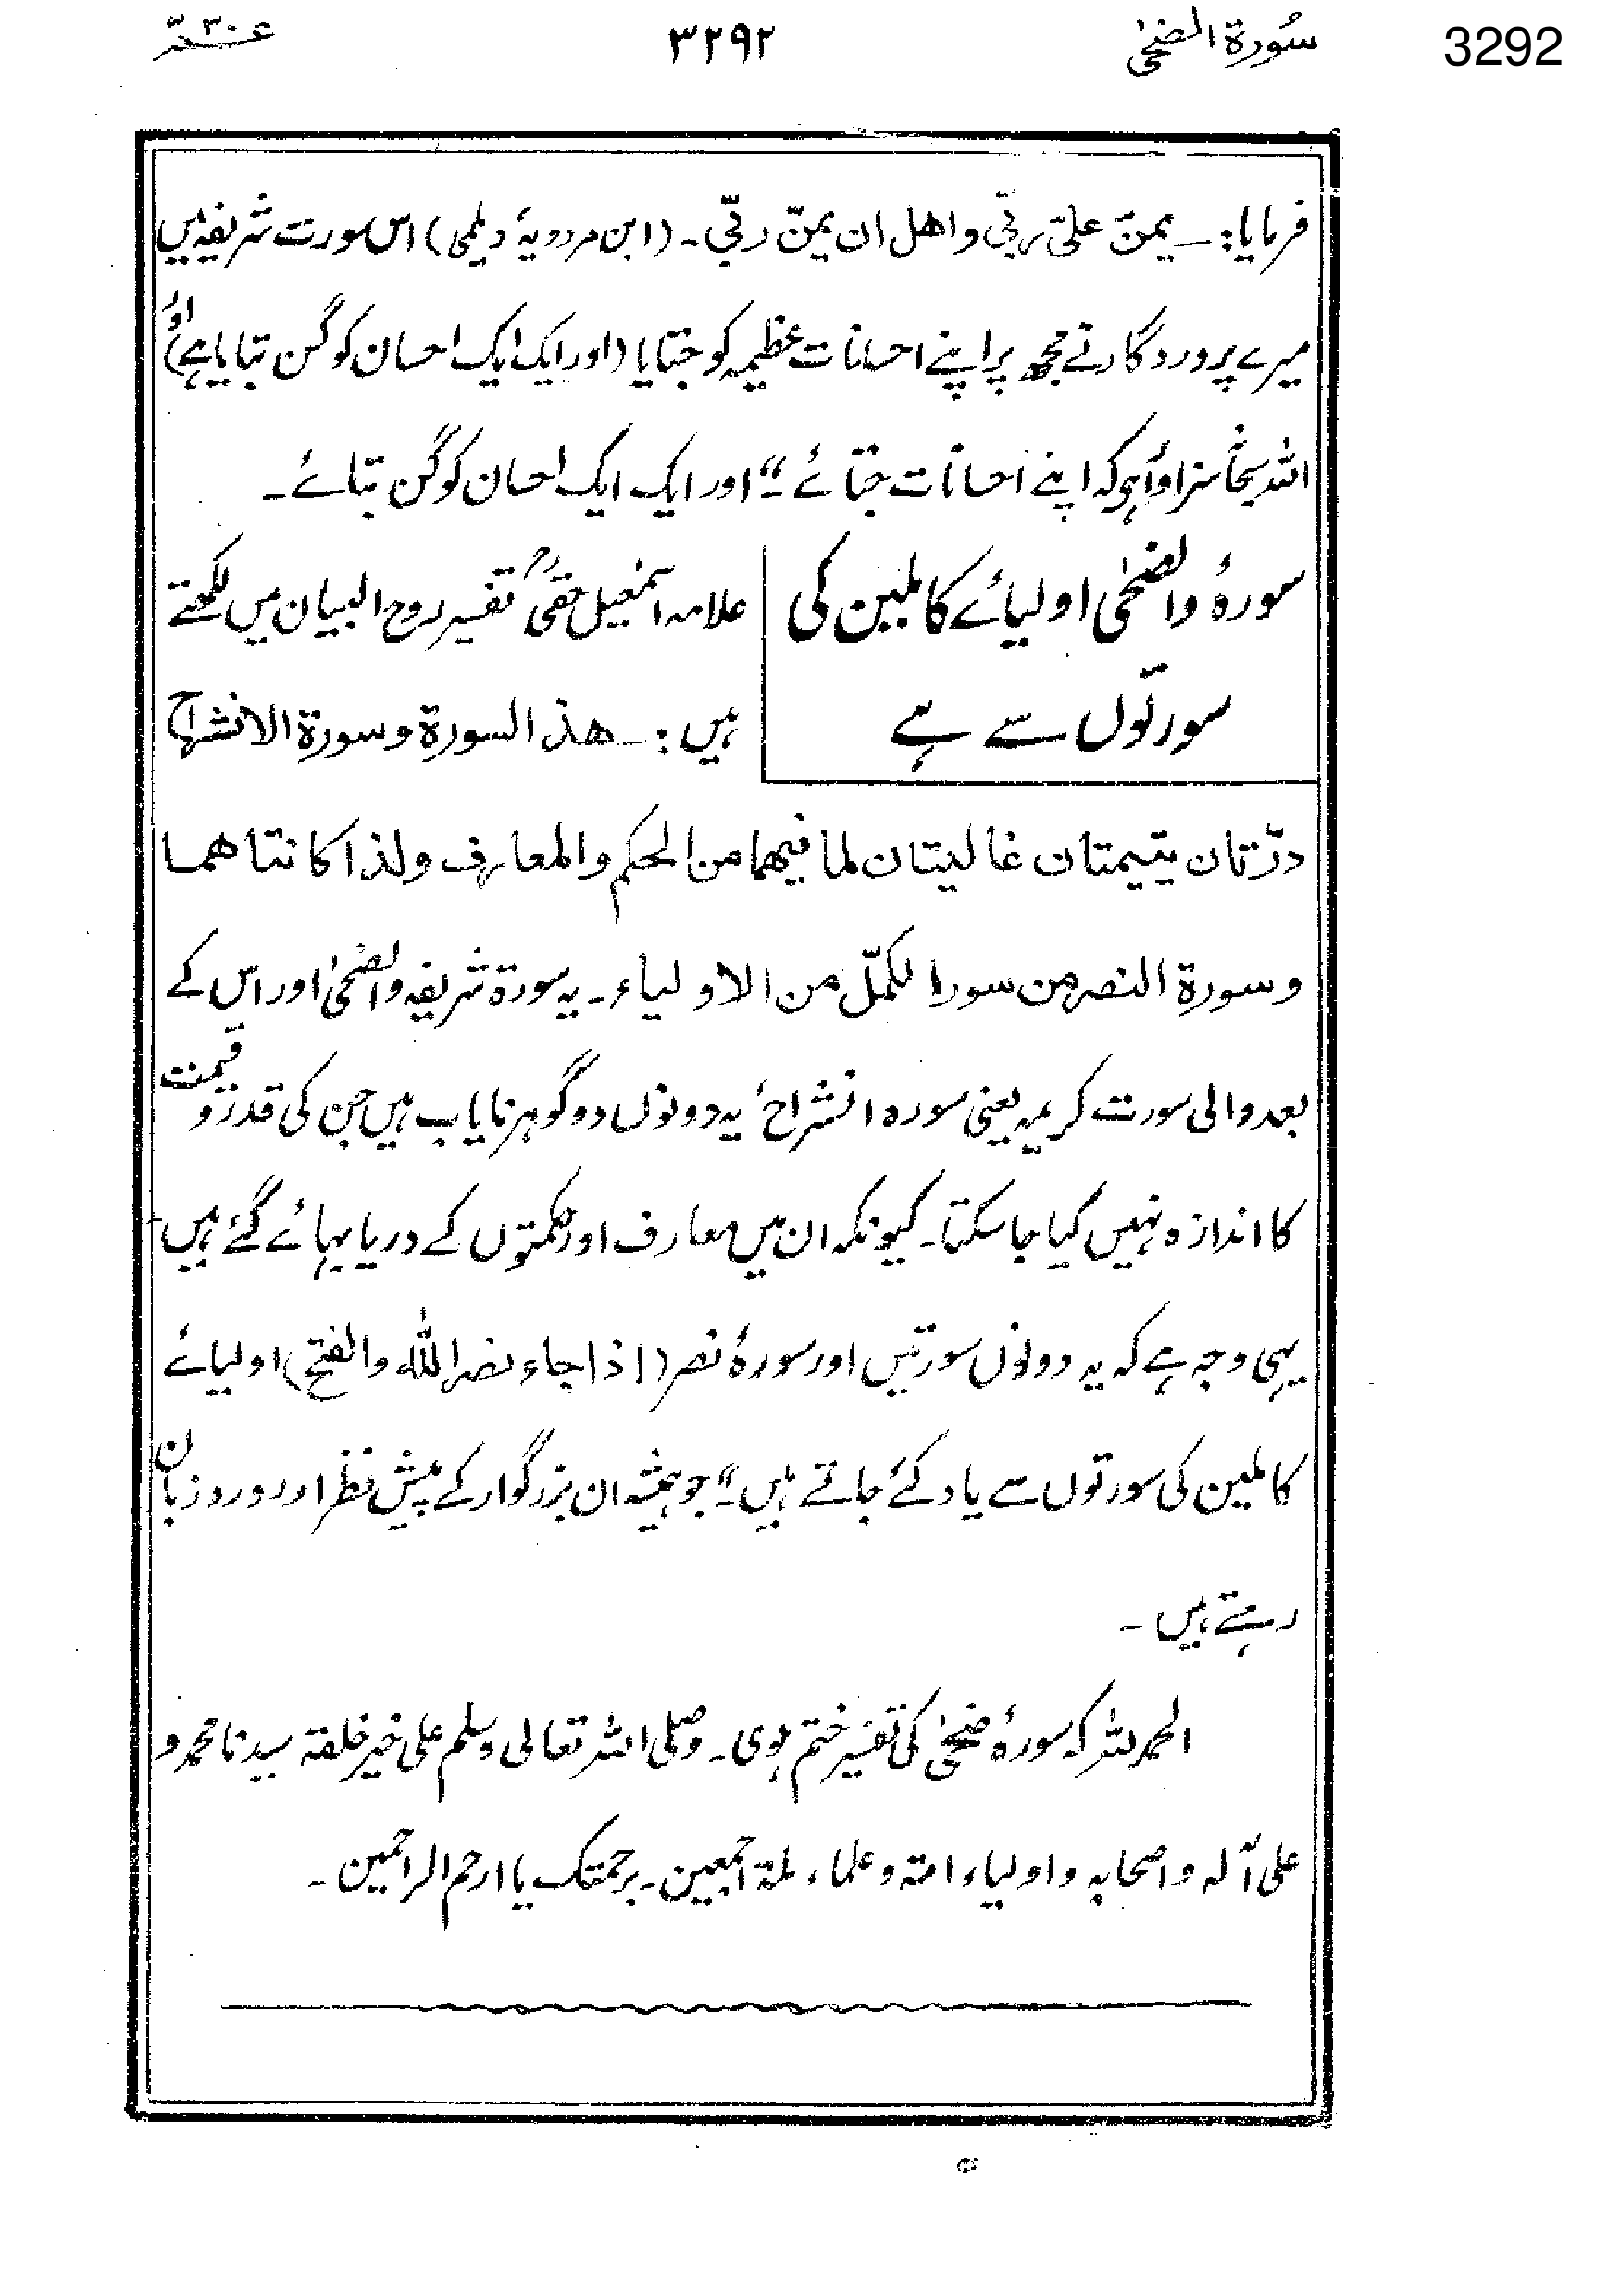 3292
سُورۃ الضحیٰ ۳۲۹۲ عمّ ۳۰
فرمایا:۔ یمنّ علیّ ربّی واھل ان یمنّ ربّی۔ (ابن مردویہ، دیلمی) اس سورت شریفہ میں
میرے پروردگار نے مجھ پر اپنے احسانات عظیمہ کو جتایا (اور ایک ایک احسان کو گن بتایا ہے) اور
اللہ سبحانہٗ سزاوار ہی کہ اپنے احسانات جتائے۔" اور ایک ایک احسان کو گن بتائے۔
سورۂ والضحیٰ اولیائے کاملین کی
سورتوں سے ہے
علامہ اسمٰعیل حقیؒ تفسیر روح البیان میں لکھتے
ہیں:۔ ھذ السورۃ وسورۃ الانشراح
درّتان یتیمتان غالیتان لما فیھما من الحکم والمعارف ولذا کانتا ھما
وسورۃ النصر من سور الکمّل من الاولیاء۔ یہ سورۃ شریفہ والضحیٰ اور اس کے
بعد والی سورت کریمہ یعنی سورہ انشراح، یہ دونوں دو گوہر نایاب ہیں جن کی قدر و قیمت
کا اندازہ نہیں کیا جا سکتا۔ کیونکہ ان میں معارف اور حکمتوں کے دریا بہائے گئے ہیں
یہی وجہ ہے کہ یہ دونوں سورتیں اور سورۂ نصر (اذا جاء نصر اللہ والفتح) اولیائے
کاملین کی سورتوں سے یاد کئے جاتے ہیں۔" جو ہمیشہ ان بزرگوار کے پیش نظر اور ورد زبان
رہتے ہیں۔
الحمد للہ کہ سورۂ ضحیٰ کی تفسیر ختم ہوی۔ وصلی اللہ تعالی وسلم علی خیر خلقہ سیدنا محمد و
علی آلہ واصحابہ واولیاء امتہ وعلماء ملۃ اجمعین۔ برحمتک یا ارحم الراحمین۔